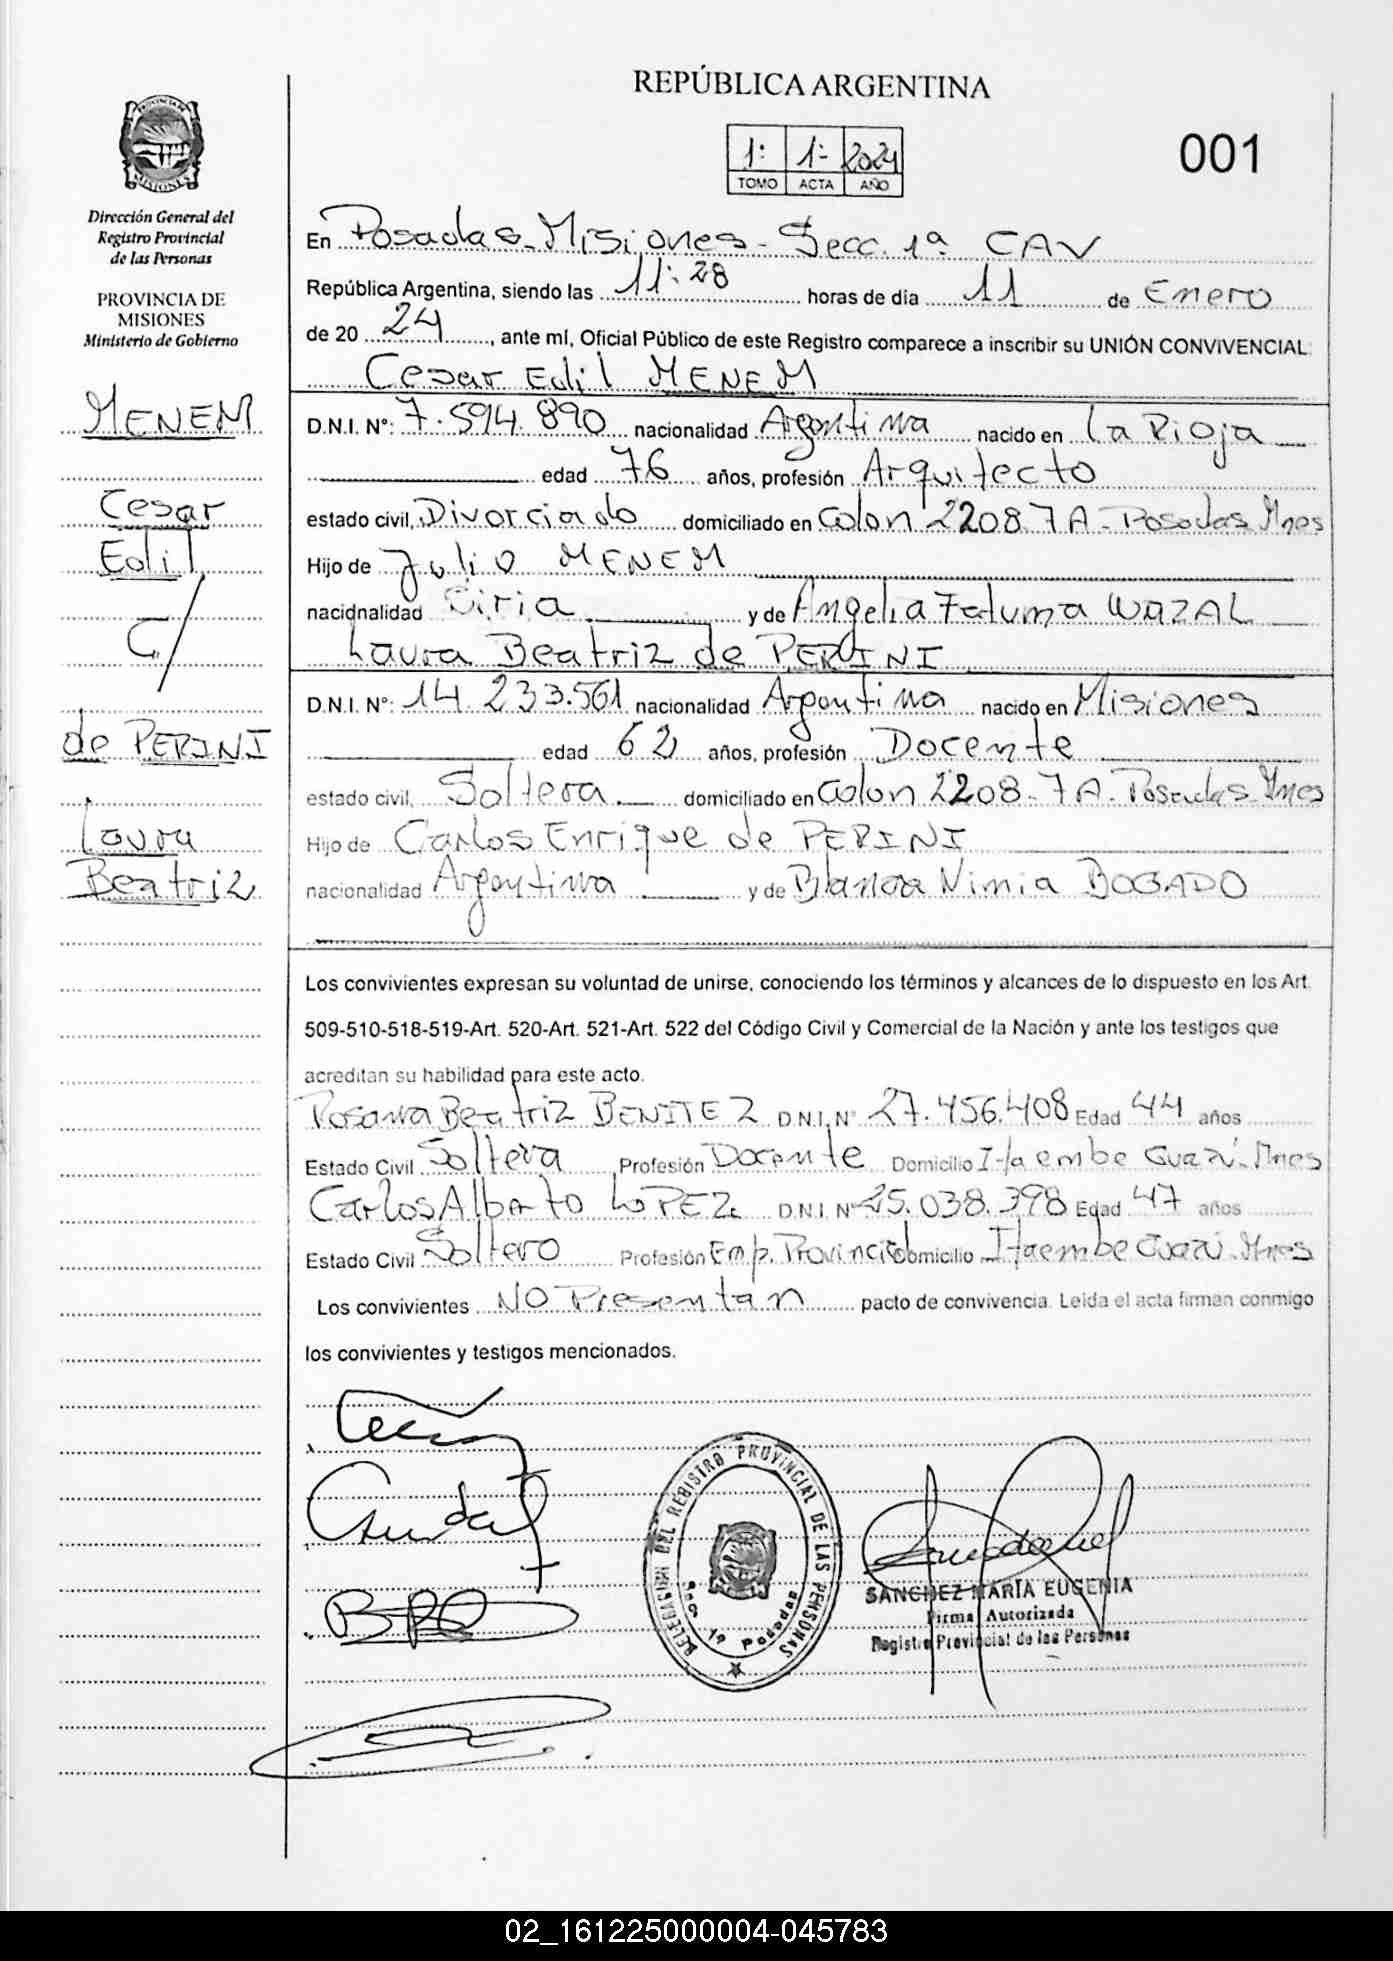 REPÚBLICA ARGENTINA
1: 1- 2024
TOMO ACTA AÑO
001
PROVINCIA DE
MISIONES
Dirección General del
Registro Provincial
de las Personas
PROVINCIA DE
MISIONES
Ministerio de Gobierno
MENEM
Cesar
Edil
C/
de PERINI
Laura
Beatriz
En Posadas-Misiones- Secc. 1ª CAV
República Argentina, siendo las 11:28 horas de día 11 de Enero
de 20 24, ante mí, Oficial Público de este Registro comparece a inscribir su UNIÓN CONVIVENCIAL:
Cesar Edil MENEM
D.N.I. N°: 7.594.890 nacionalidad Argentina nacido en La Rioja
edad 76 años, profesión Arquitecto
estado civil, Divorciado domiciliado en Colon 2208.7A-Posadas Mnes
Hijo de Julio MENEM
nacionalidad Siria y de Angelia Fatuma WAZAL
Laura Beatriz de PERINI
D.N.I. N°: 14.233.561 nacionalidad Argentina nacido en Misiones
edad 62 años, profesión Docente
estado civil, Soltera domiciliado en Colon 2208-7A-Posadas Mnes
Hijo de Carlos Enrique de PERINI
nacionalidad Argentina y de Blanca Nimia BOGADO
Los convivientes expresan su voluntad de unirse, conociendo los términos y alcances de lo dispuesto en los Art.
509-510-518-519-Art. 520-Art. 521-Art. 522 del Código Civil y Comercial de la Nación y ante los testigos que
acreditan su habilidad para este acto.
Rosana Beatriz BENITEZ D.N.I. N° 27.456.408 Edad 44 años
Estado Civil Soltera Profesión Docente Domicilio Itaembe Guazú-Mnes
Carlos Alberto LOPEZ D.N.I. N° 25.038.398 Edad 47 años
Estado Civil Soltero Profesión Emp. Provincial Domicilio Itaembe Guazú-Mnes
Los convivientes NO Presentan pacto de convivencia. Leída el acta firman conmigo
los convivientes y testigos mencionados.
DELEGACION DEL REGISTRO PROVINCIAL DE LAS PERSONAS
Secc 1ª Posadas
SANCHEZ MARIA EUGENIA
Firma Autorizada
Registro Provincial de las Personas
02_161225000004-045783